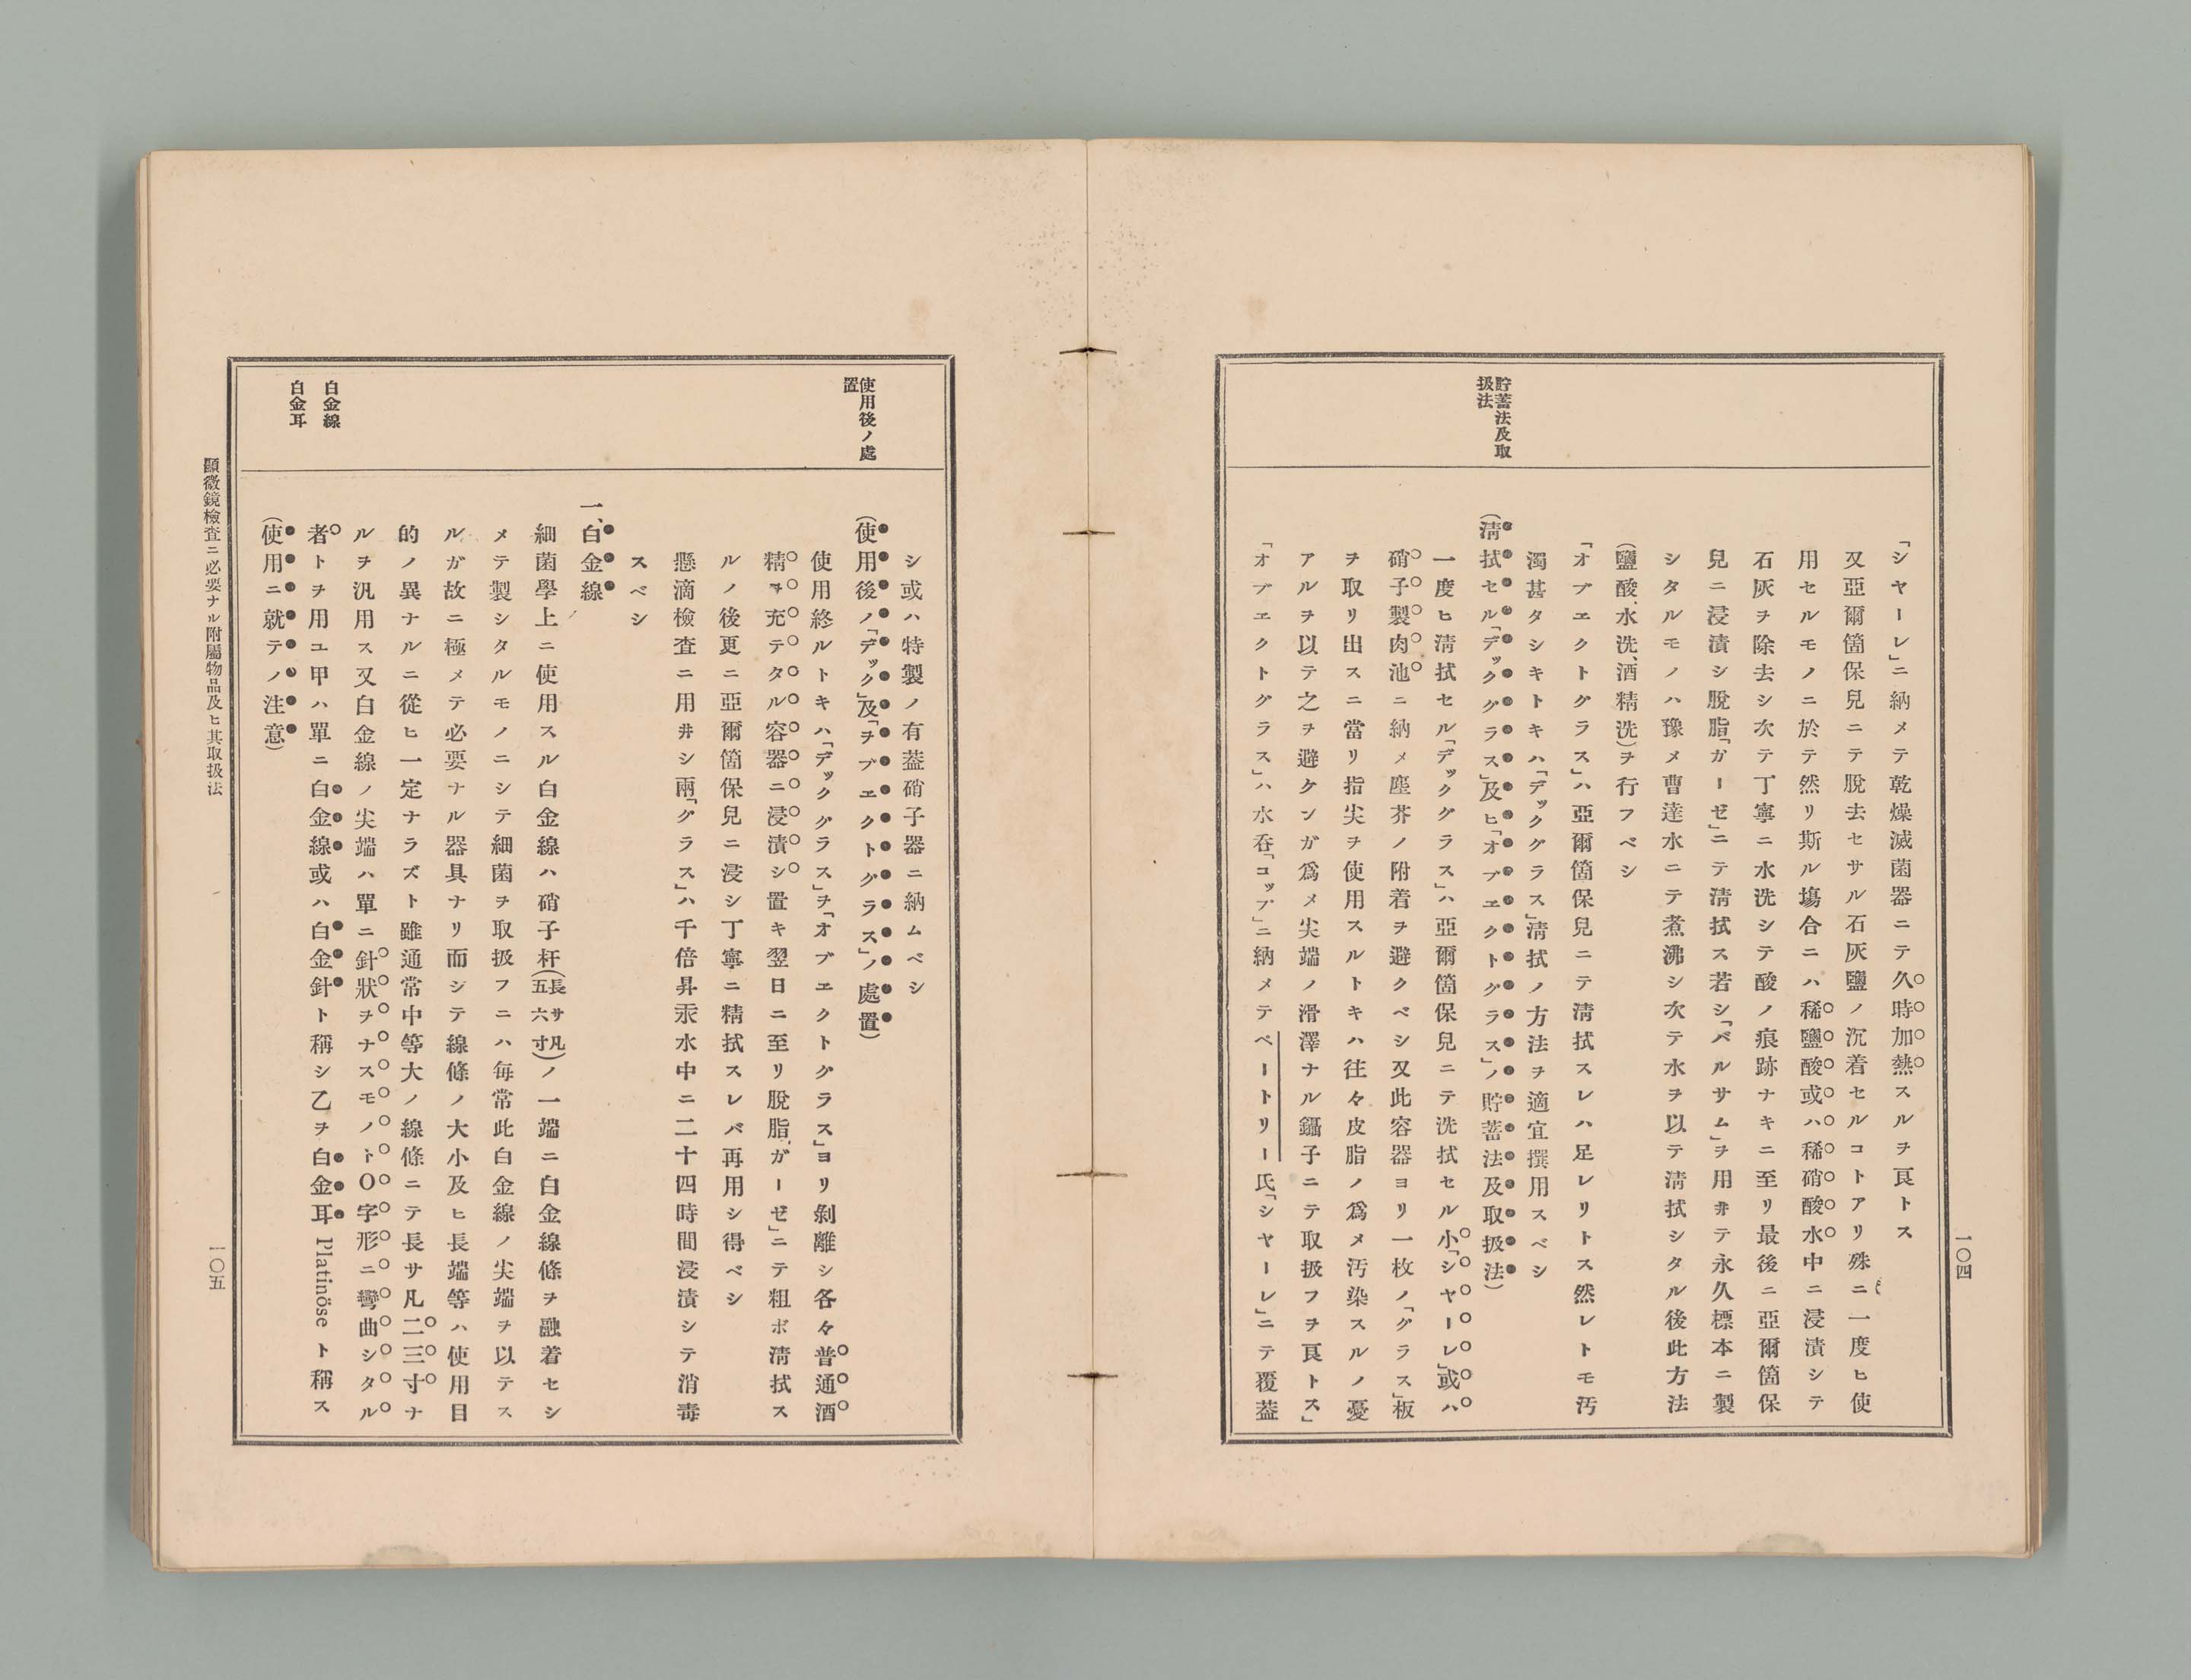 一〇四
貯蓄法及取
扱法
「シヤーレ」ニ納メテ乾燥滅菌器ニテ久時加熱スルヲ良トス
又亞爾箇保兒ニテ脫去セサル石灰鹽ノ沉着セルコトアリ殊ニ一度ヒ使
用セルモノニ於テ然リ斯ル塲合ニハ稀鹽酸或ハ稀硝酸水中ニ浸漬シテ
石灰ヲ除去シ次テ丁寧ニ水洗シテ酸ノ痕跡ナキニ至リ最後ニ亞爾箇保
兒ニ浸漬シ脫脂「ガーゼ」ニテ淸拭ス若シ「バルサム」ヲ用井テ永久標本ニ製
シタルモノハ豫メ曹達水ニテ煮沸シ次テ水ヲ以テ淸拭シタル後此方法
(鹽酸、水洗、酒精洗)ヲ行フベシ
「オブエクトグラス」ハ亞爾箇保兒ニテ淸拭スレハ足レリトス然レトモ汚
濁甚タシキトキハ「デックグラス」淸拭ノ方法ヲ適宜撰用スベシ
(淸拭セル「デックグラス」及ヒ「オブエクトグラス」ノ貯蓄法及取扱法)
一度ヒ淸拭セル「デックグラス」ハ亞爾箇保兒ニテ洗拭セル小「シヤーレ」或ハ
硝子製肉池ニ納メ塵芥ノ附着ヲ避クベシ又此容器ヨリ一枚ノ「グラス」板
ヲ取リ出スニ當リ指尖ヲ使用スルトキハ往々皮脂ノ爲メ汚染スルノ憂
アルヲ以テ之ヲ避ケンガ爲メ尖端ノ滑澤ナル鑷子ニテ取扱フヲ良トス」
「オブエクトグラス」ハ水呑「コップ」ニ納メテペートリー氏「シヤーレ」ニテ覆葢
使用後ノ處
置
白金線
白金耳
シ或ハ特製ノ有葢硝子器ニ納ムベシ
(使用後ノ「デック」及「ヲブエクトグラス」ノ處置)
使用終ルトキハ「デックグラス」ヲ「オブエクトグラス」ヨリ剝離シ各々普通酒
精ヲ充テタル容器ニ浸漬シ置キ翌日ニ至リ脫脂「ガーゼ」ニテ粗ボ淸拭ス
ルノ後更ニ亞爾箇保兒ニ浸シ丁寧ニ精拭スレバ再用シ得ベシ
懸滴檢査ニ用井シ兩「グラス」ハ千倍昇汞水中ニ二十四時間浸漬シテ消毒
スベシ
一、白金線
細菌學上ニ使用スル白金線ハ硝子杆(長サ凡五六寸)ノ一端ニ白金線條ヲ融着セシ
メテ製シタルモノニシテ細菌ヲ取扱フニハ每常此白金線ノ尖端ヲ以テス
ルガ故ニ極メテ必要ナル器具ナリ而シテ線條ノ大小及ヒ長端等ハ使用目
的ノ異ナルニ從ヒ一定ナラズト雖通常中等大ノ線條ニテ長サ凡二三寸ナ
ルヲ汎用ス又白金線ノ尖端ハ單ニ針狀ヲナスモノトO字形ニ彎曲シタル
者トヲ用ユ甲ハ單ニ白金線或ハ白金針ト稱シ乙ヲ白金耳 Platinöse ト稱ス
(使用ニ就テノ注意)
顯微鏡檢査ニ必要ナル附屬物品及ヒ其取扱法
一〇五